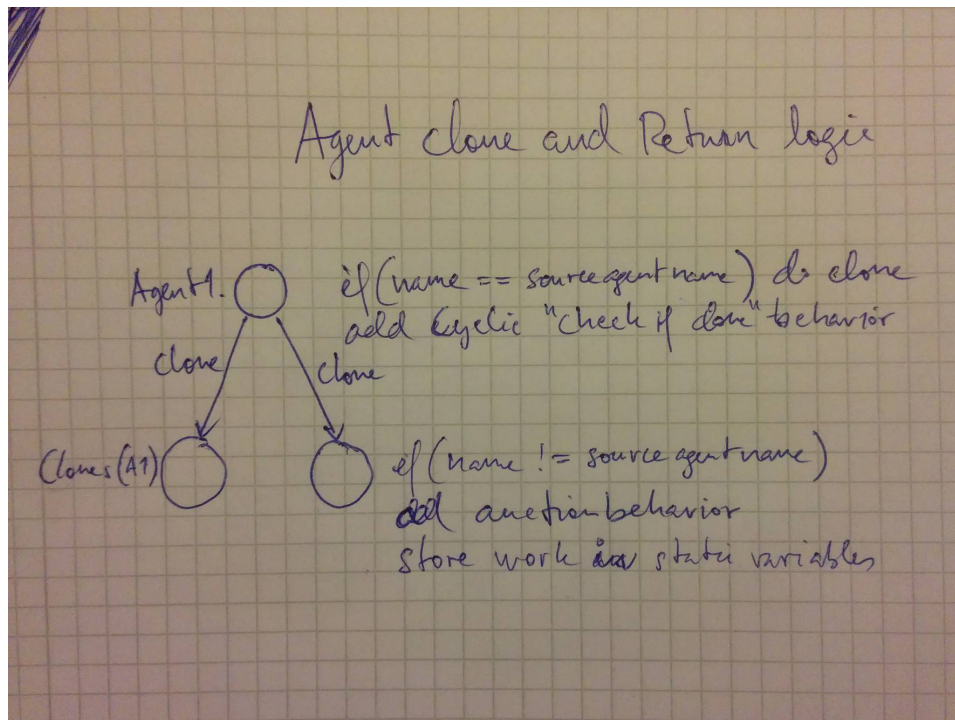 Agent clone and Return logic
Agent1.
if (name == sourceagentname) do clone
add Cyclic "check if done" behavior
clone
clone
Clones (A1)
if (name != sourceagentname)
add auctionbehavior
store work in static variables